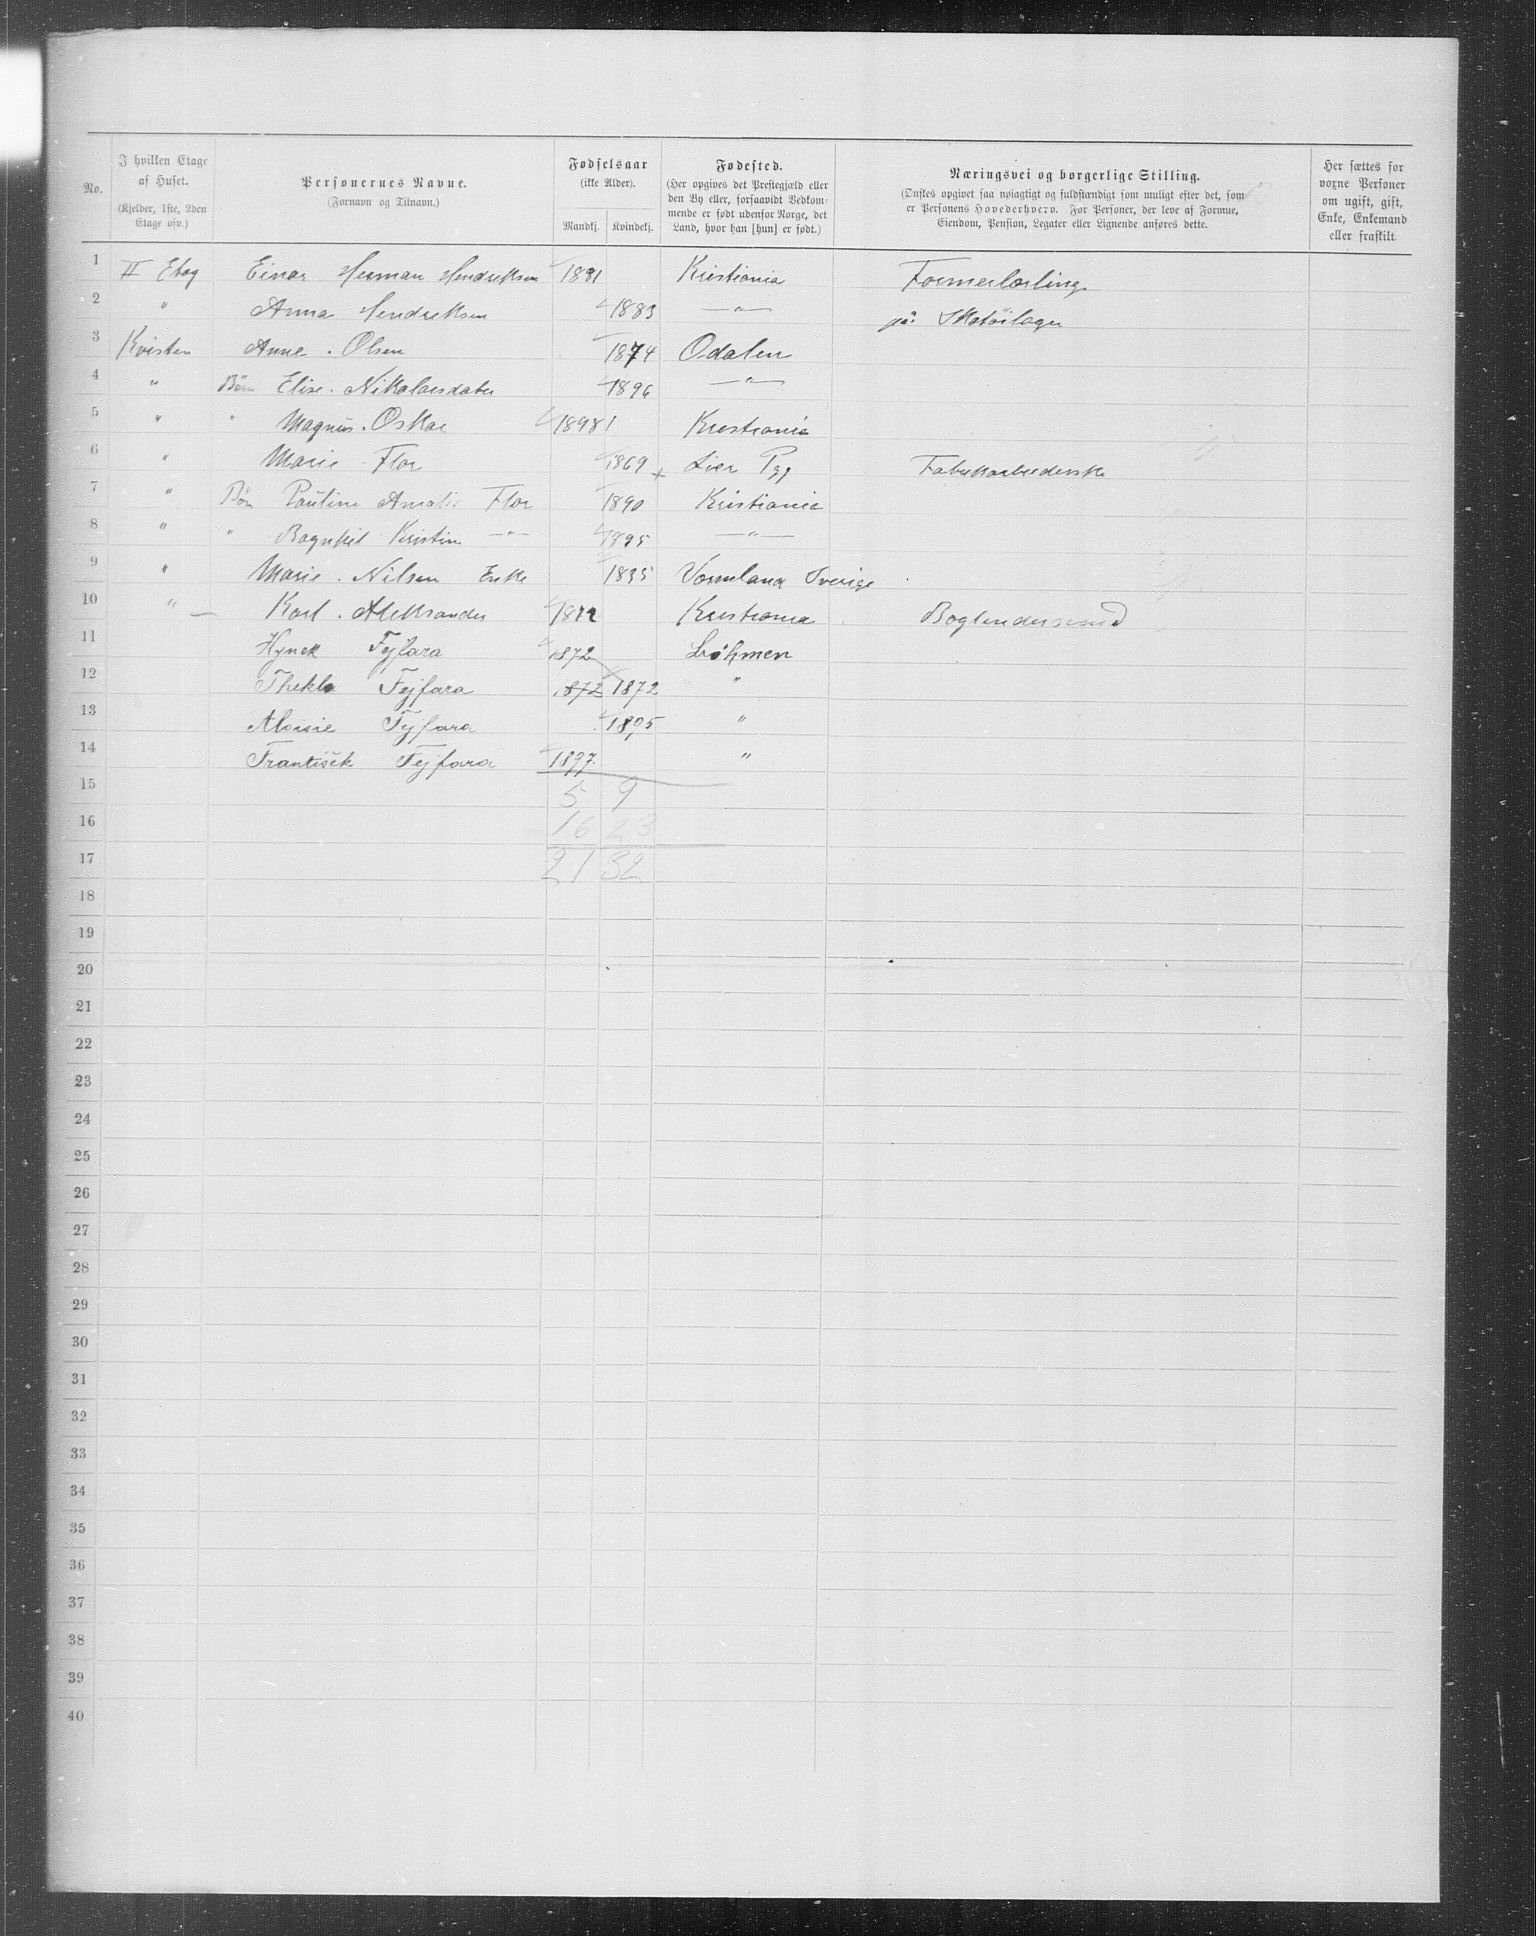 No.
I hvilken Etage af Huset.
(Kjelder, 1ste, 2den Etage osv.)
Personernes Navne.
(Fornavn og Tilnavn.)
Fødselsaar
(ikke Alder).
Mandkj. Kvindekj.
Fødested.
(Her opgives det Prestegjæld eller
den By eller, forsaavidt Vedkom-
mende er født udenfor Norge, det
Land, hvor han [hun] er født.)
Næringsvei og borgerlige Stilling.
(Ønskes opgivet saa nøiagtigt og fuldstændigt som muligt efter det, som
er Personens Hovederhverv. For Personer, der leve af Formue,
Eiendom, Pension, Legater eller Lignende anføres dette.
Her sættes for
voxne Personer
om ugift, gift,
Enke, Enkemand
eller fraskilt.
1 II Etag Einar Herman Hendriksen 1881 Kristiania Formerlærling
2 " Anna Hendriksen 1883 —"— på Skotöilager
3 Kvisten Anne. Olsen 1874 Odalen
4 " Børn Elise. Nikolaisdater 1896 —"—
5 " " Magnus. Oskar 1898 Kristiania
6 " Marie Flor 1869 Lier Pgj Fabrikarbeiderske
7 " Børn Pauline Amalie Flor 1890 Kristiania
8 " " Kristin —"— 1895 —"—
9 " Marie. Nilsen Enke 1835 Vermland Sverige
10 " Karl. Aleksander Kristiania Boglendersvend
11 Hynek Fejfara 1872 Böhmen
12 Thekla Fejfara 1872 1872 "
13 Aloisie Fejfara 1895 "
14 František Fejfara 1897. "
15 5 9
16 16 23
17 21 32
18
19
20
21
22
23
24
25
26
27
28
29
30
31
32
33
34
35
36
37
38
39
40